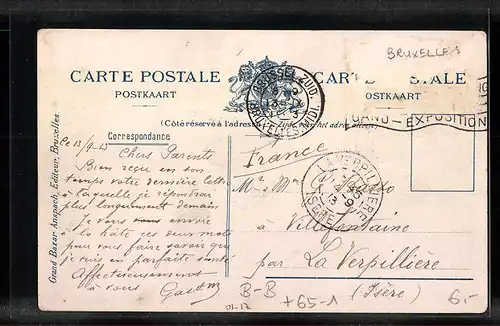 BRUXELLES
CARTE POSTALE
CARTE POSTALE
POSTKAART
POSTKAART
BRUSSEL ZUID
BRUXELLES MIDI
GAND - EXPOSITION
(Côté réservé à l'adresse)
Correspondance
Ce 13/9-13
Chers Parents
Bien reçu en son
temps votre dernière lettre
à laquelle je répondrai
plus longuement demain
Je vous envoie
à la hâte ces deux mots
pour vous faire savoir que
je suis en parfaite santé
Affectueusement
à vous
Grand Bazar Anspach, Editeur, Bruxelles
France
LA VERPILLIERE
ISERE
à
Villefontaine
par La Verpilliere
(Isère)
B-B
+65-1
6.-